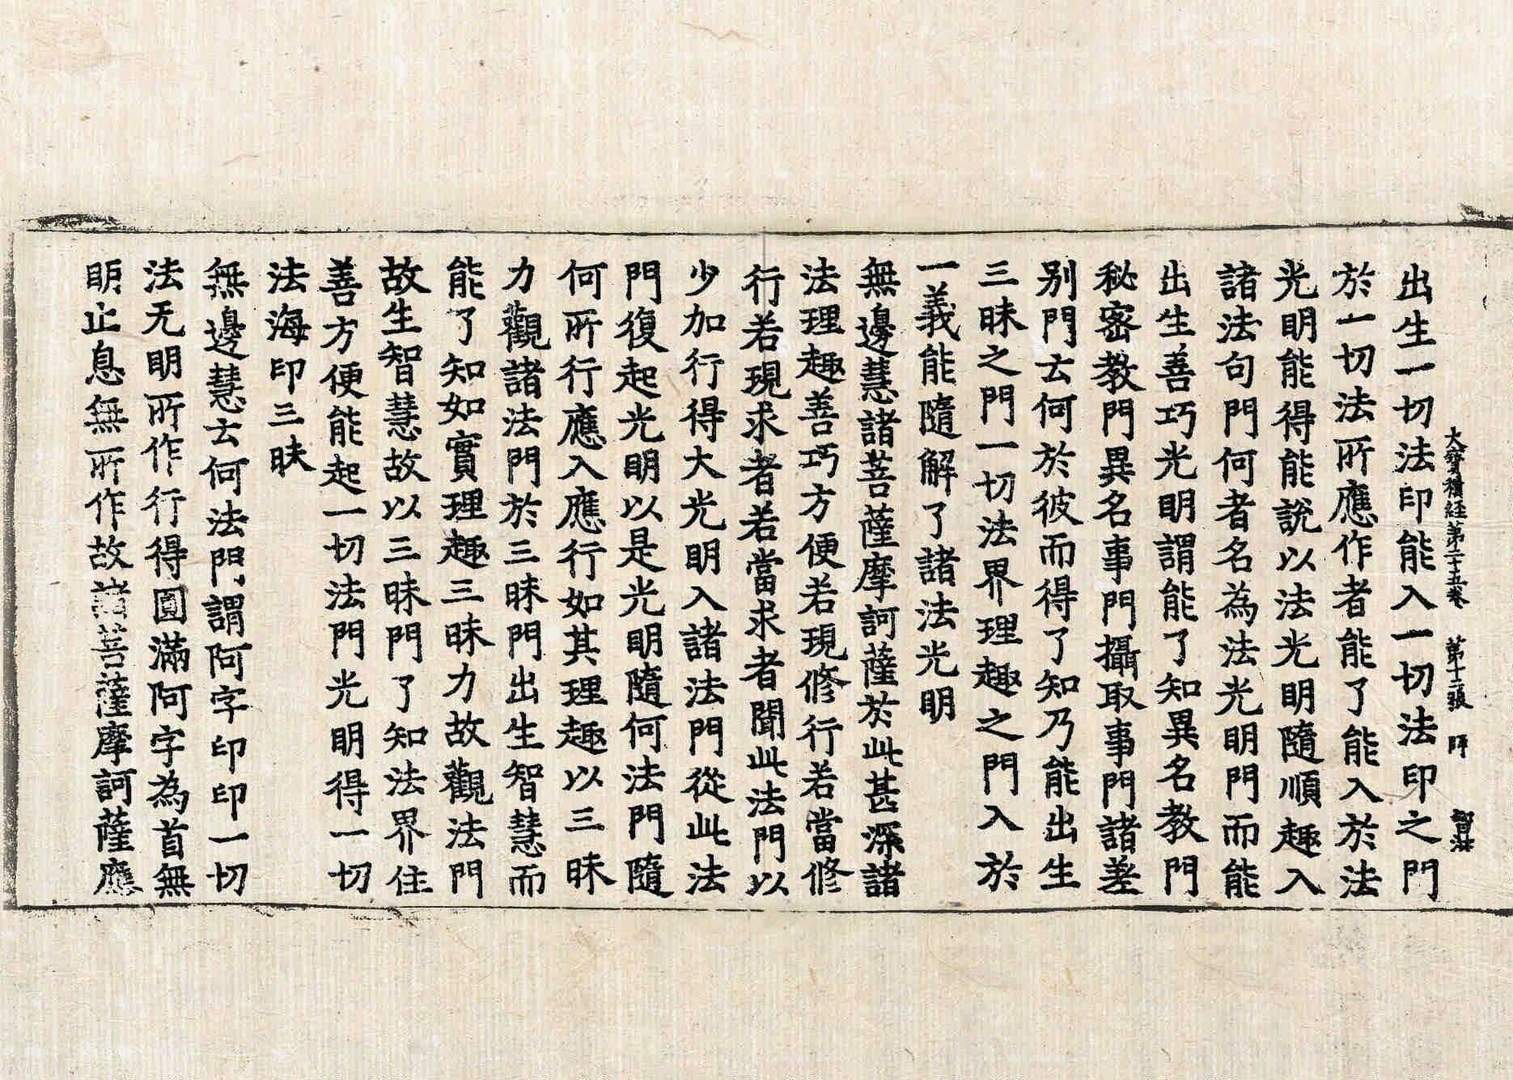 大寶積經第二十五卷 第十二張 師
出生一切法印能入一切法印之門
於一切法所應作者能了能入於法
光明能得能說以法光明隨順趣入
諸法句門何者名為法光明門而能
出生善巧光明謂能了知異名教門
秘密教門異名事門攝取事門諸差
别門云何於彼而得了知乃能出生
三昧之門一切法界理趣之門入於
一義能隨解了諸法光明
無邊慧諸菩薩摩訶薩於此甚深諸
法理趣善巧方便若現修行若當修
行若現求者若當求者聞此法門以
少加行得大光明入諸法門從此法
門復起光明以是光明隨何法門隨
何所行應入應行如其理趣以三昧
力觀諸法門於三昧門出生智慧而
能了知如實理趣三昧力故觀法門
故生智慧故以三昧門了知法界住
善方便能起一切法門光明得一切
法海印三昧
無邊慧云何法門謂阿字印印一切
法无明所作行得圓滿阿字為首無
明止息無所作故諸菩薩摩訶薩應